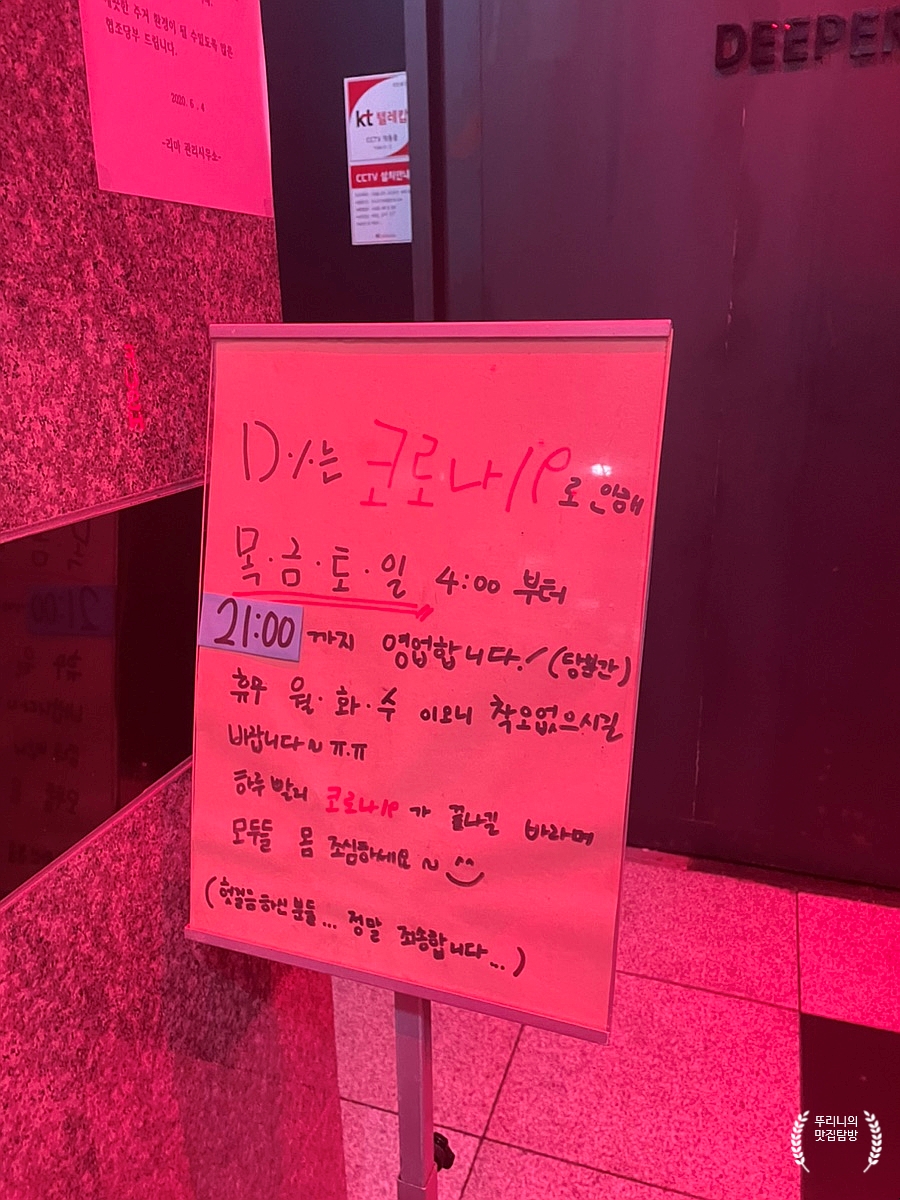 깨끗한 주거 환경이 될 수있도록 많은
협조당부 드립니다.
2020. 6. 4
-리마 관리사무소-
DEEPER
kt 텔레캅
CCTV 작동중
CCTV 설치안내
D.I.는 코로나19로 인해
목·금·토·일 4:00 부터
21:00 까지 영업합니다! (당분간)
휴무 월·화·수 이오니 착오없으시길
바랍니다~ ㅠ.ㅠ
하루 빨리 코로나19가 끝나길 바라며
모두들 몸 조심하세요~ ^^
(헛걸음하신 분들... 정말 죄송합니다...)
뚜리니의
맛집탐방